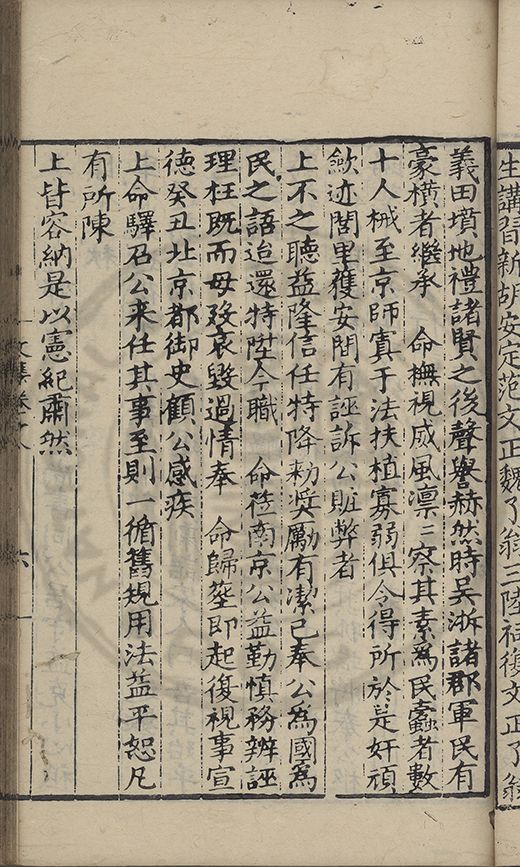 生講習新胡安定范文正魏了翁三陸祠復文正了翁
義田墳地禮諸賢之後聲譽赫然時吳浙諸郡軍民有
豪横者繼承　命撫視威風凛〻察其素爲民蠹者數
十人械至京師寘于法扶植寡弱俱令得所於是奸頑
歛迹閭里獲安間有誣訴公賍弊者
上不之聽益隆信任特降勑奬勵有潔己奉公爲國爲
民之語迨還特陞今職　命莅南京公益勤慎務辨誣
理枉既而母歿哀毀過情奉　命歸塟即起復視事宣
德癸丑北京都御史顧公感疾
上命驛召公来任其事至則一循舊規用法益平恕凡
有所陳
上皆容納是以憲紀肅然
文集卷之八　六